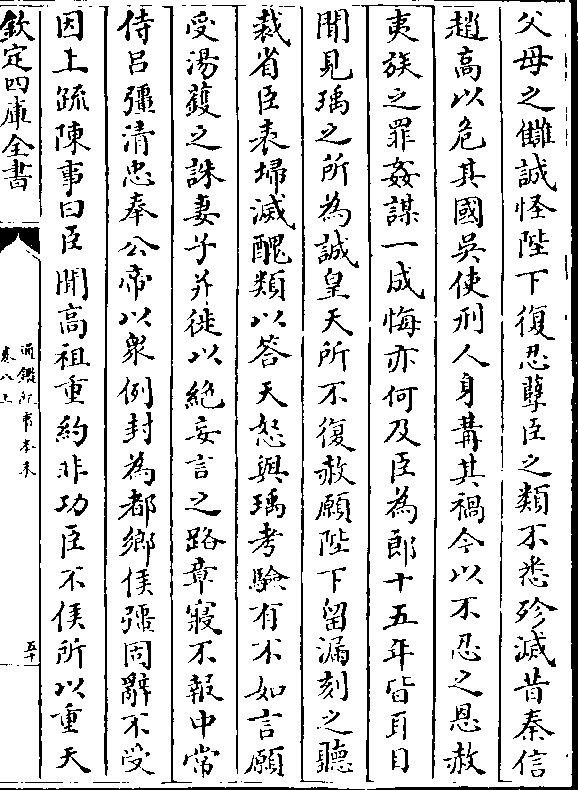 父母之讎誠怪陛下復忍孽臣之類不悉殄滅昔秦信
趙高以危其國吳使刑人身遘其禍今以不忍之恩赦
夷族之罪姦謀一成悔亦何及臣為郎十五年皆耳目
聞見瑀之所為誠皇天所不復赦願陛下留漏刻之聽
裁省臣表埽滅醜類以答天怒與瑀考驗有不如言願
受湯鑊之誅妻子并徙以絶妄言之路章寢不報中常
侍吕彊清忠奉公帝以衆例封為都鄉侯彊固辭不受
因上疏陳事曰臣聞高祖重約非功臣不侯所以重天
欽定四庫全書
通鑑紀事本末
卷八上
五十